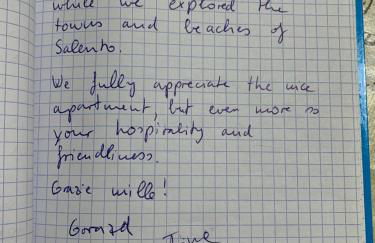 while we explored the
towns and beaches of
Salento.
We fully appreciate the nice
apartment, but even more so
your hospitality and
friendliness.
Grazie mille!
Gorazd